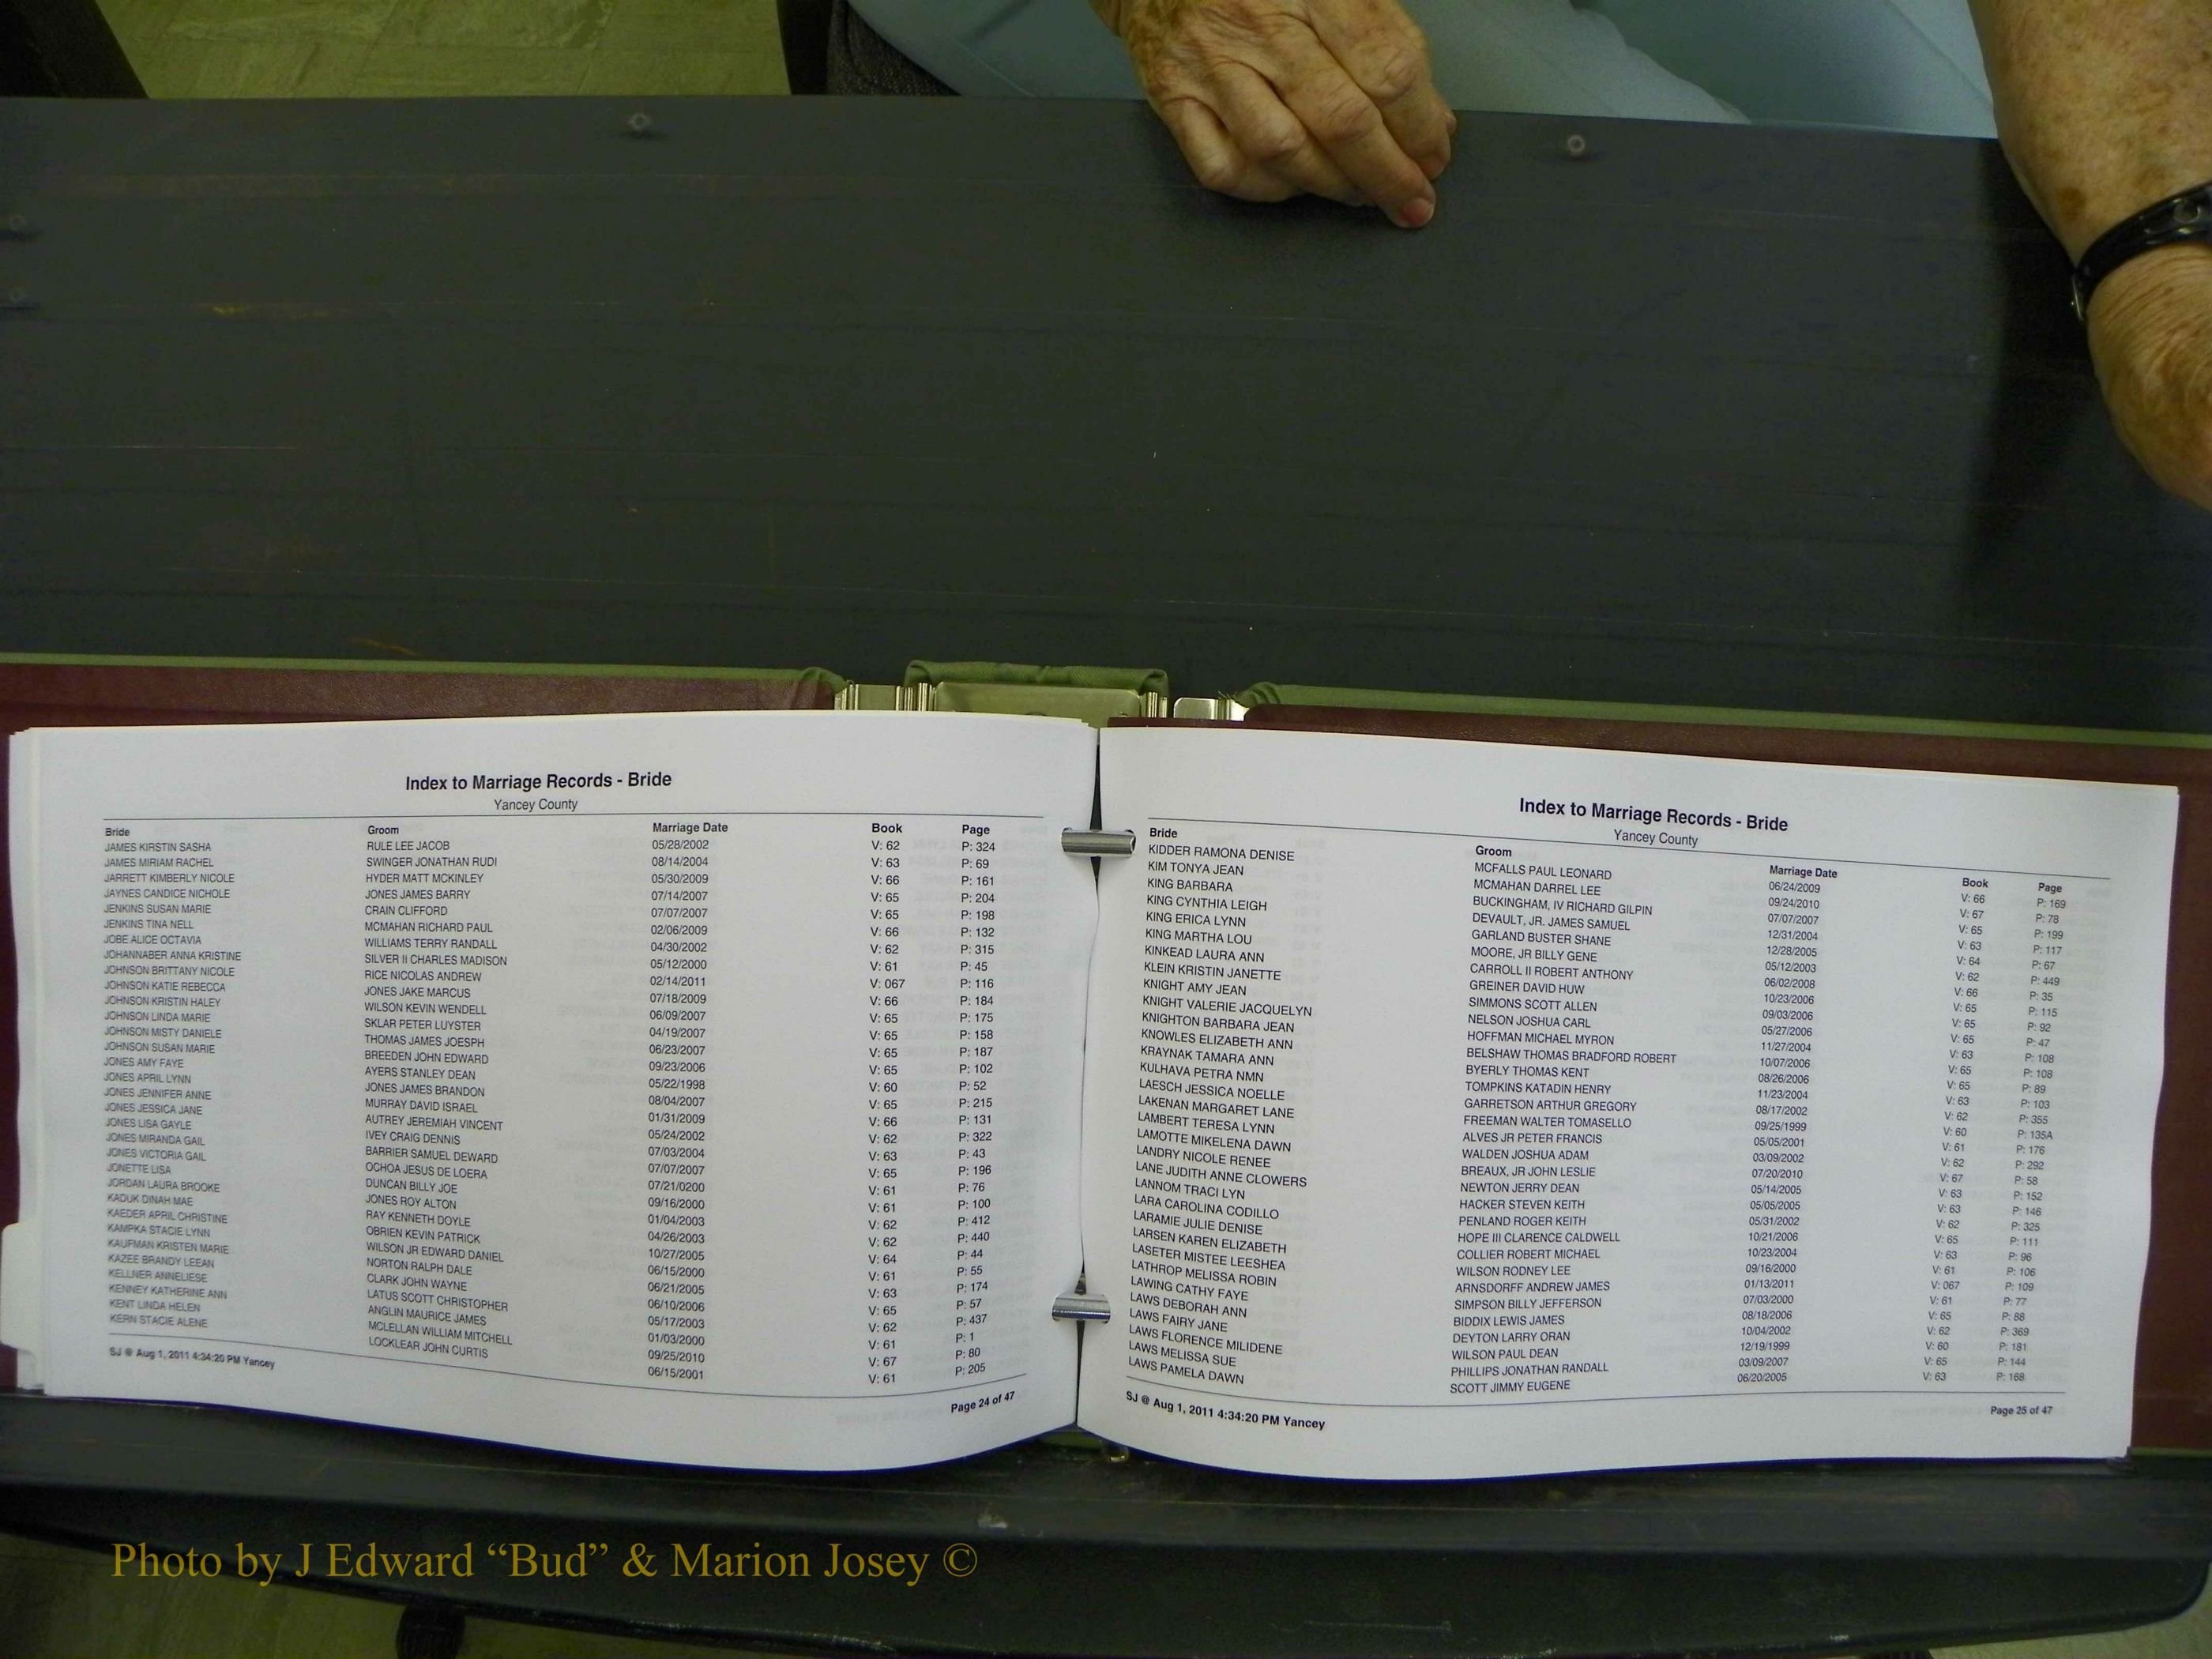 Index to Marriage Records - Bride
Yancey County
Bride Groom Marriage Date Book Page
JAMES KIRSTIN SASHA RULE LEE JACOB 05/28/2002 V: 62 P: 324
JAMES MIRIAM RACHEL SWINGER JONATHAN RUDI 08/14/2004 V: 63 P: 69
JARRETT KIMBERLY NICOLE HYDER MATT MCKINLEY 05/30/2009 V: 66 P: 161
JAYNES CANDICE NICHOLE JONES JAMES BARRY 07/14/2007 V: 65 P: 204
JENKINS SUSAN MARIE CRAIN CLIFFORD 07/07/2007 V: 65 P: 198
JENKINS TINA NELL MCMAHAN RICHARD PAUL 02/06/2009 V: 66 P: 132
JOBE ALICE OCTAVIA WILLIAMS TERRY RANDALL 04/30/2002 V: 62 P: 315
JOHANNABER ANNA KRISTINE SILVER II CHARLES MADISON 05/12/2000 V: 61 P: 45
JOHNSON BRITTANY NICOLE RICE NICOLAS ANDREW 02/14/2011 V: 067 P: 116
JOHNSON KATIE REBECCA JONES JAKE MARCUS 07/18/2009 V: 66 P: 184
JOHNSON KRISTIN HALEY WILSON KEVIN WENDELL 06/09/2007 V: 65 P: 175
JOHNSON LINDA MARIE SKLAR PETER LUYSTER 04/19/2007 V: 65 P: 158
JOHNSON MISTY DANIELE THOMAS JAMES JOESPH 06/23/2007 V: 65 P: 187
JOHNSON SUSAN MARIE BREEDEN JOHN EDWARD 09/23/2006 V: 65 P: 102
JONES AMY FAYE AYERS STANLEY DEAN 05/22/1998 V: 60 P: 52
JONES APRIL LYNN JONES JAMES BRANDON 08/04/2007 V: 65 P: 215
JONES JENNIFER ANNE MURRAY DAVID ISRAEL 01/31/2009 V: 66 P: 131
JONES JESSICA JANE AUTREY JEREMIAH VINCENT 05/24/2002 V: 62 P: 322
JONES LISA GAYLE IVEY CRAIG DENNIS 07/03/2004 V: 63 P: 43
JONES MIRANDA GAIL BARRIER SAMUEL DEWARD 07/07/2007 V: 65 P: 196
JONES VICTORIA GAIL OCHOA JESUS DE LOERA 07/21/0200 V: 61 P: 76
JONETTE LISA DUNCAN BILLY JOE 09/16/2000 V: 61 P: 100
JORDAN LAURA BROOKE JONES ROY ALTON 01/04/2003 V: 62 P: 412
KADUK DINAH MAE RAY KENNETH DOYLE 04/26/2003 V: 62 P: 440
KAEDER APRIL CHRISTINE OBRIEN KEVIN PATRICK 10/27/2005 V: 64 P: 44
KAMPKA STACIE LYNN WILSON JR EDWARD DANIEL 06/15/2000 V: 61 P: 55
KAUFMAN KRISTEN MARIE NORTON RALPH DALE 06/21/2005 V: 63 P: 174
KAZEE BRANDY LEEAN CLARK JOHN WAYNE 06/10/2006 V: 65 P: 57
KELLNER ANNELIESE LATUS SCOTT CHRISTOPHER 05/17/2003 V: 62 P: 437
KENNEY KATHERINE ANN ANGLIN MAURICE JAMES 01/03/2000 V: 61 P: 1
KENT LINDA HELEN MCLELLAN WILLIAM MITCHELL 09/25/2010 V: 67 P: 80
KERN STACIE ALENE LOCKLEAR JOHN CURTIS 06/15/2001 V: 61 P: 205
SJ @ Aug 1, 2011 4:34:20 PM Yancey Page 24 of 47
Index to Marriage Records - Bride
Yancey County
Bride Groom Marriage Date Book Page
KIDDER RAMONA DENISE MCFALLS PAUL LEONARD 06/24/2009 V: 66 P: 169
KIM TONYA JEAN MCMAHAN DARREL LEE 09/24/2010 V: 67 P: 78
KING BARBARA BUCKINGHAM, IV RICHARD GILPIN 07/07/2007 V: 65 P: 199
KING CYNTHIA LEIGH DEVAULT, JR. JAMES SAMUEL 12/31/2004 V: 63 P: 117
KING ERICA LYNN GARLAND BUSTER SHANE 12/28/2005 V: 64 P: 67
KING MARTHA LOU MOORE, JR BILLY GENE 05/12/2003 V: 62 P: 449
KINKEAD LAURA ANN CARROLL II ROBERT ANTHONY 06/02/2008 V: 66 P: 35
KLEIN KRISTIN JANETTE GREINER DAVID HUW 10/23/2006 V: 65 P: 115
KNIGHT AMY JEAN SIMMONS SCOTT ALLEN 09/03/2006 V: 65 P: 92
KNIGHT VALERIE JACQUELYN NELSON JOSHUA CARL 05/27/2006 V: 65 P: 47
KNIGHTON BARBARA JEAN HOFFMAN MICHAEL MYRON 11/27/2004 V: 63 P: 108
KNOWLES ELIZABETH ANN BELSHAW THOMAS BRADFORD ROBERT 10/07/2006 V: 65 P: 108
KRAYNAK TAMARA ANN BYERLY THOMAS KENT 08/26/2006 V: 65 P: 89
KULHAVA PETRA NMN TOMPKINS KATADIN HENRY 11/23/2004 V: 63 P: 103
LAESCH JESSICA NOELLE GARRETSON ARTHUR GREGORY 08/17/2002 V: 62 P: 355
LAKENAN MARGARET LANE FREEMAN WALTER TOMASELLO 09/25/1999 V: 60 P: 135A
LAMBERT TERESA LYNN ALVES JR PETER FRANCIS 05/05/2001 V: 61 P: 176
LAMOTTE MIKELENA DAWN WALDEN JOSHUA ADAM 03/09/2002 V: 62 P: 292
LANDRY NICOLE RENEE BREAUX, JR JOHN LESLIE 07/20/2010 V: 67 P: 58
LANE JUDITH ANNE CLOWERS NEWTON JERRY DEAN 05/14/2005 V: 63 P: 152
LANNOM TRACI LYN HACKER STEVEN KEITH 05/05/2005 V: 63 P: 146
LARA CAROLINA CODILLO PENLAND ROGER KEITH 05/31/2002 V: 62 P: 325
LARAMIE JULIE DENISE HOPE III CLARENCE CALDWELL 10/21/2006 V: 65 P: 111
LARSEN KAREN ELIZABETH COLLIER ROBERT MICHAEL 10/23/2004 V: 63 P: 96
LASETER MISTEE LEESHEA WILSON RODNEY LEE 09/16/2000 V: 61 P: 106
LATHROP MELISSA ROBIN ARNSDORFF ANDREW JAMES 01/13/2011 V: 067 P: 109
LAWING CATHY FAYE SIMPSON BILLY JEFFERSON 07/03/2000 V: 61 P: 77
LAWS DEBORAH ANN BIDDIX LEWIS JAMES 08/18/2006 V: 65 P: 88
LAWS FAIRY JANE DEYTON LARRY ORAN 10/04/2002 V: 62 P: 369
LAWS FLORENCE MILIDENE WILSON PAUL DEAN 12/19/1999 V: 60 P: 181
LAWS MELISSA SUE PHILLIPS JONATHAN RANDALL 03/09/2007 V: 65 P: 144
LAWS PAMELA DAWN SCOTT JIMMY EUGENE 06/20/2005 V: 63 P: 168
SJ @ Aug 1, 2011 4:34:20 PM Yancey Page 25 of 47
Photo by J Edward “Bud” & Marion Josey ©